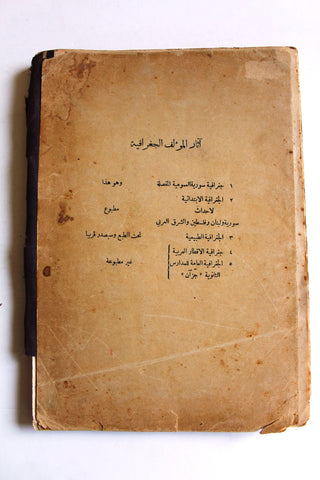 آثار المؤلف الجغرافية
١ جغرافية سورية العمومية المفصلة وهو هذا
٢ الجغرافية الابتدائية
لأحداث مطبوع
سورية ولبنان وفلسطين والشرق العربي
٣ الجغرافية الطبيعية تحت الطبع وسيصدر قريبا
٤ جغرافية الاقطار العربية
٥ الجغرافية العامة للمدارس غير مطبوعة
الثانوية « جزآن »